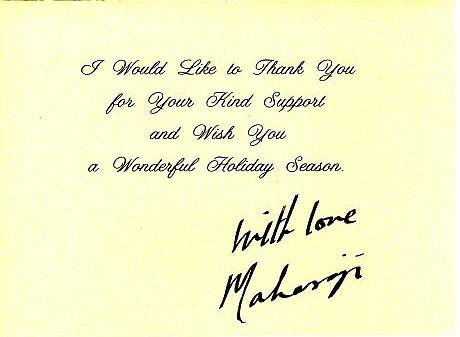 I Would Like to Thank You
for Your Kind Support
and Wish You
a Wonderful Holiday Season.
With love
Maharaji